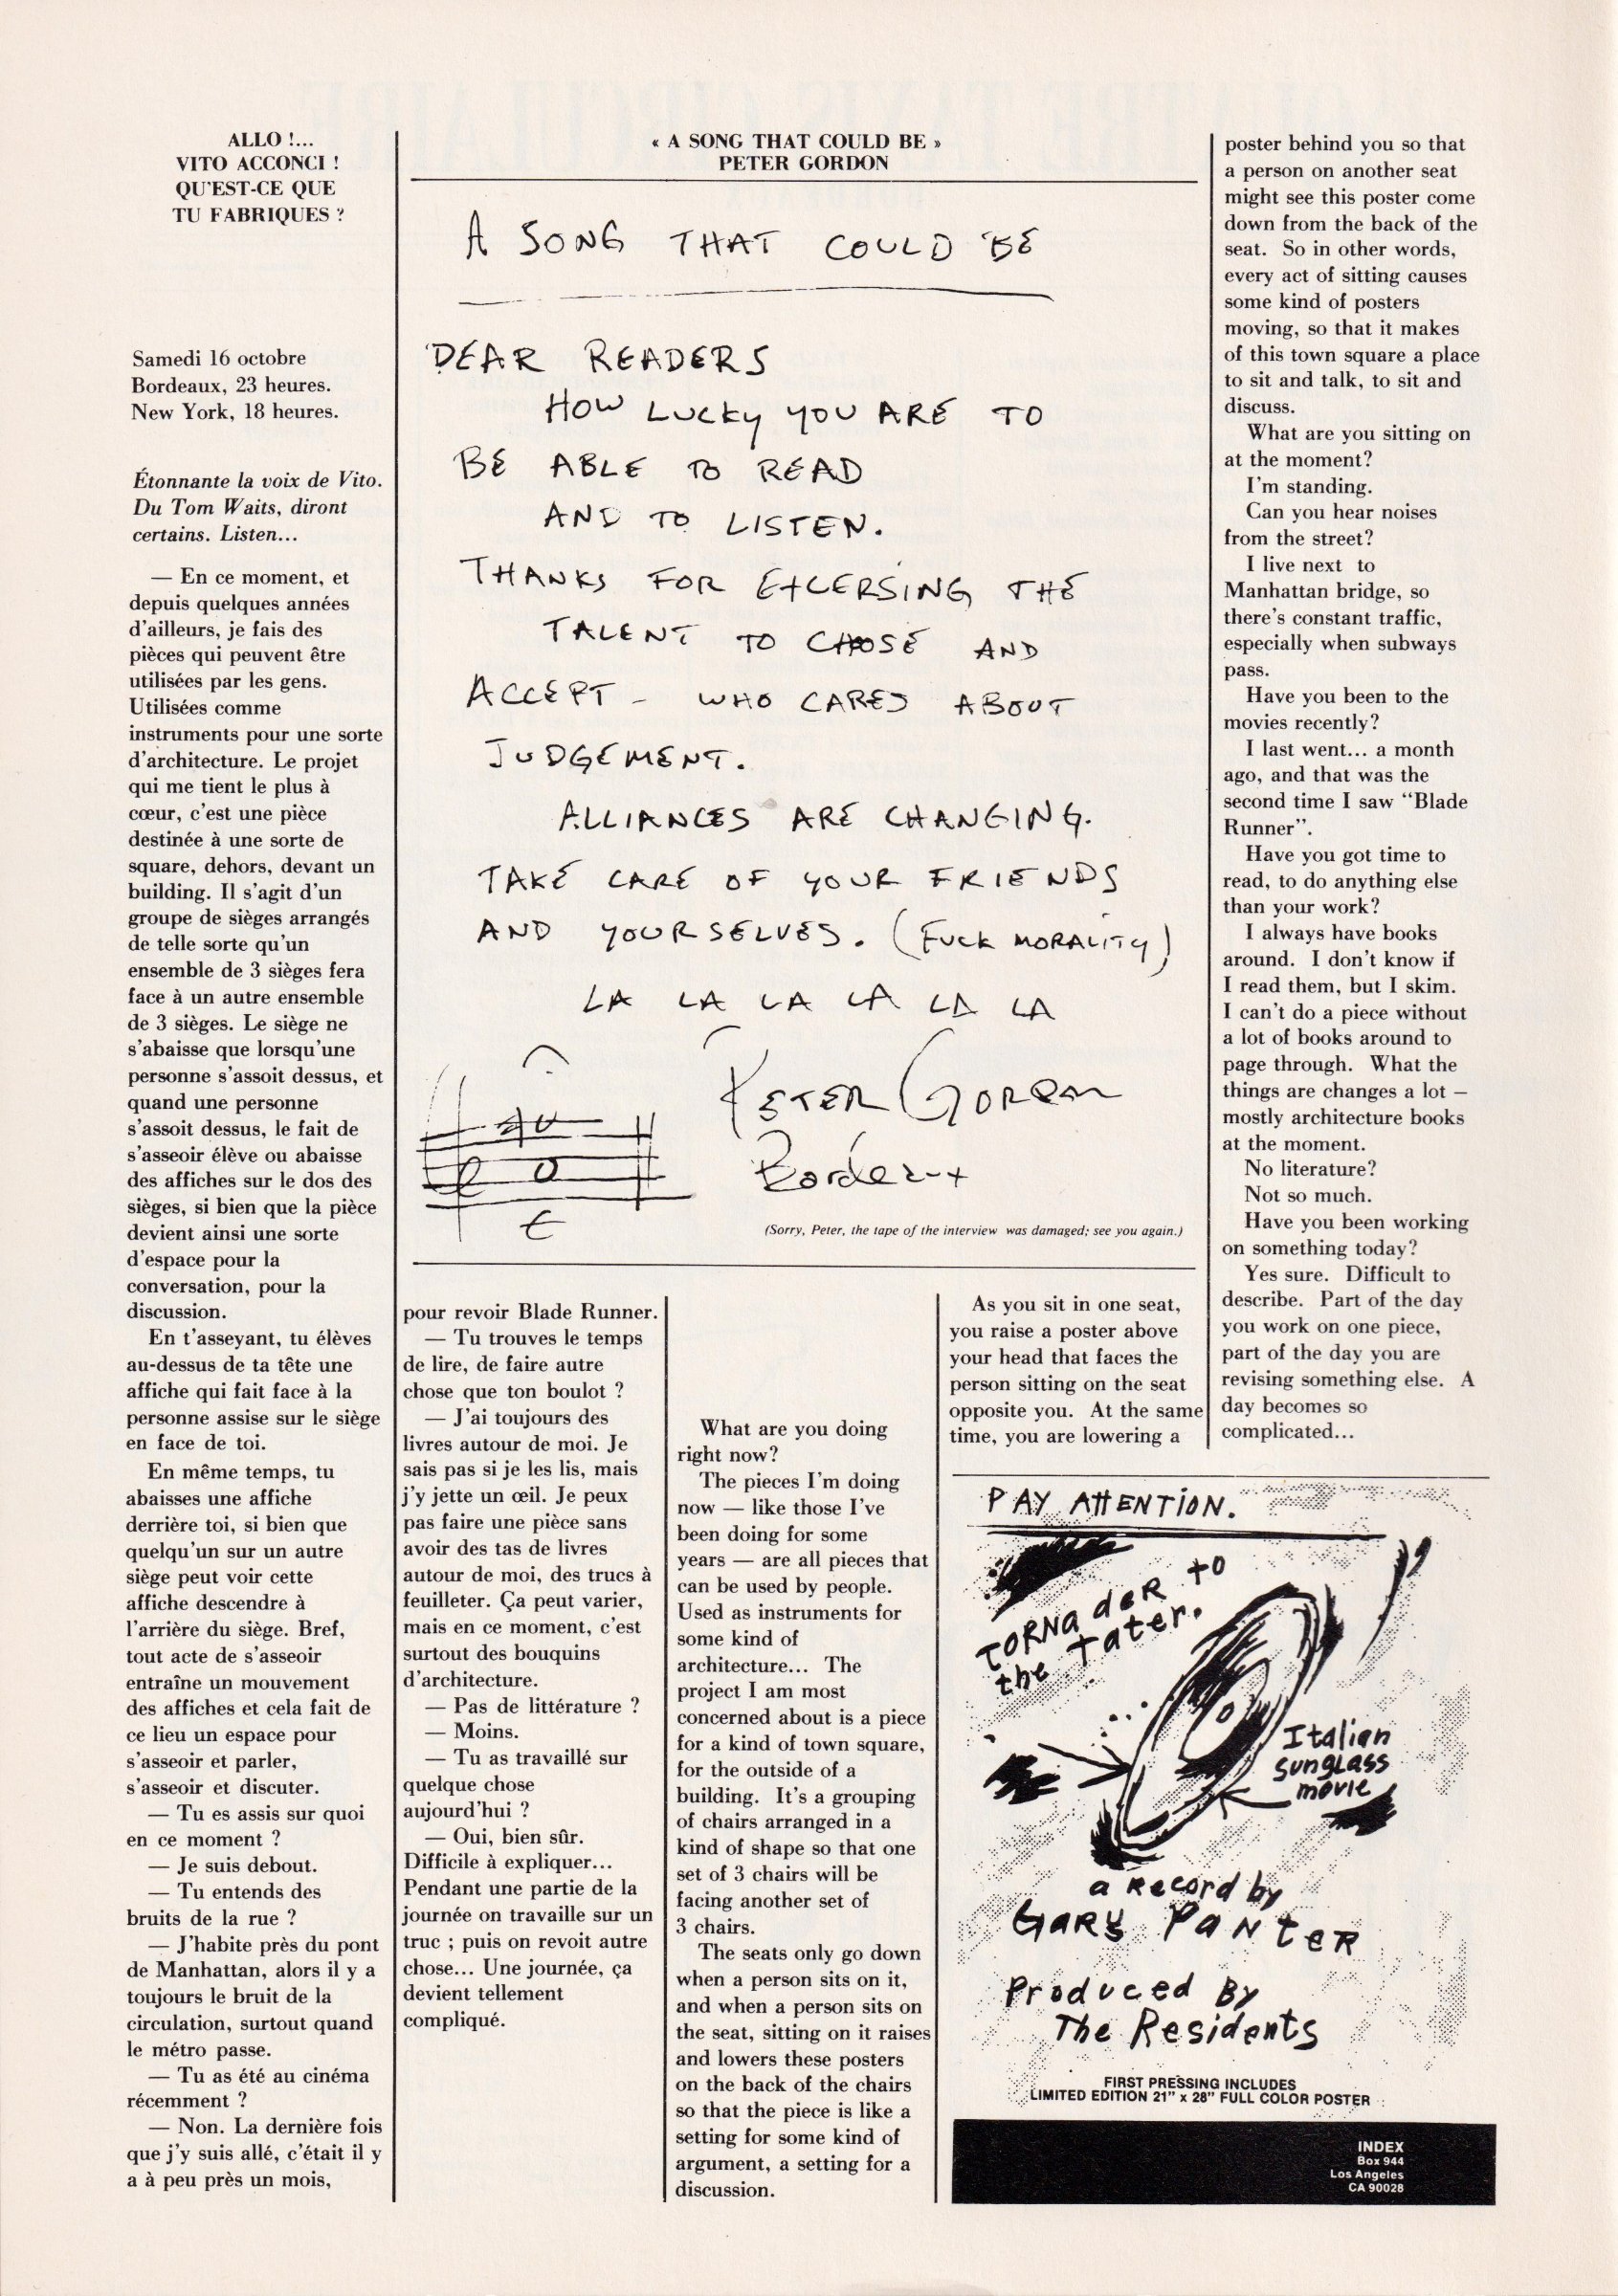 ALLO !...
VITO ACCONCI !
QU'EST-CE QUE
TU FABRIQUES ?
Samedi 16 octobre
Bordeaux, 23 heures.
New York, 18 heures.
Étonnante la voix de Vito.
Du Tom Waits, diront
certains. Listen...
— En ce moment, et
depuis quelques années
d'ailleurs, je fais des
pièces qui peuvent être
utilisées par les gens.
Utilisées comme
instruments pour une sorte
d'architecture. Le projet
qui me tient le plus à
cœur, c'est une pièce
destinée à une sorte de
square, dehors, devant un
building. Il s'agit d'un
groupe de sièges arrangés
de telle sorte qu'un
ensemble de 3 sièges fera
face à un autre ensemble
de 3 sièges. Le siège ne
s'abaisse que lorsqu'une
personne s'assoit dessus, et
quand une personne
s'assoit dessus, le fait de
s'asseoir élève ou abaisse
des affiches sur le dos des
sièges, si bien que la pièce
devient ainsi une sorte
d'espace pour la
conversation, pour la
discussion.
En t'asseyant, tu élèves
au-dessus de ta tête une
affiche qui fait face à la
personne assise sur le siège
en face de toi.
En même temps, tu
abaisses une affiche
derrière toi, si bien que
quelqu'un sur un autre
siège peut voir cette
affiche descendre à
l'arrière du siège. Bref,
tout acte de s'asseoir
entraîne un mouvement
des affiches et cela fait de
ce lieu un espace pour
s'asseoir et parler,
s'asseoir et discuter.
— Tu es assis sur quoi
en ce moment ?
— Je suis debout.
— Tu entends des
bruits de la rue ?
— J'habite près du pont
de Manhattan, alors il y a
toujours le bruit de la
circulation, surtout quand
le métro passe.
— Tu as été au cinéma
récemment ?
— Non. La dernière fois
que j'y suis allé, c'était il y
a à peu près un mois,
pour revoir Blade Runner.
— Tu trouves le temps
de lire, de faire autre
chose que ton boulot ?
— J'ai toujours des
livres autour de moi. Je
sais pas si je les lis, mais
j'y jette un œil. Je peux
pas faire une pièce sans
avoir des tas de livres
autour de moi, des trucs à
feuilleter. Ça peut varier,
mais en ce moment, c'est
surtout des bouquins
d'architecture.
— Pas de littérature ?
— Moins.
— Tu as travaillé sur
quelque chose
aujourd'hui ?
— Oui, bien sûr.
Difficile à expliquer...
Pendant une partie de la
journée on travaille sur un
truc ; puis on revoit autre
chose... Une journée, ça
devient tellement
compliqué.
« A SONG THAT COULD BE »
PETER GORDON
A SONG THAT COULD BE
DEAR READERS
HOW LUCKY YOU ARE TO
BE ABLE TO READ
AND TO LISTEN.
THANKS FOR EXCERSING THE
TALENT TO CHOSE AND
ACCEPT - WHO CARES ABOUT
JUDGEMENT.
ALLIANCES ARE CHANGING.
TAKE CARE OF YOUR FRIENDS
AND YOURSELVES. (FUCK MORALITY)
LA LA LA LA LA LA
PETER GORDON
(Sorry, Peter, the tape of the interview was damaged; see you again.)
What are you doing
right now?
The pieces I'm doing
now — like those I've
been doing for some
years — are all pieces that
can be used by people.
Used as instruments for
some kind of
architecture... The
project I am most
concerned about is a piece
for a kind of town square,
for the outside of a
building. It's a grouping
of chairs arranged in a
kind of shape so that one
set of 3 chairs will be
facing another set of
3 chairs.
The seats only go down
when a person sits on it,
and when a person sits on
the seat, sitting on it raises
and lowers these posters
on the back of the chairs
so that the piece is like a
setting for some kind of
argument, a setting for a
discussion.
As you sit in one seat,
you raise a poster above
your head that faces the
person sitting on the seat
opposite you. At the same
time, you are lowering a
poster behind you so that
a person on another seat
might see this poster come
down from the back of the
seat. So in other words,
every act of sitting causes
some kind of posters
moving, so that it makes
of this town square a place
to sit and talk, to sit and
discuss.
What are you sitting on
at the moment?
I'm standing.
Can you hear noises
from the street?
I live next to
Manhattan bridge, so
there's constant traffic,
especially when subways
pass.
Have you been to the
movies recently?
I last went... a month
ago, and that was the
second time I saw “Blade
Runner”.
Have you got time to
read, to do anything else
than your work?
I always have books
around. I don't know if
I read them, but I skim.
I can't do a piece without
a lot of books around to
page through. What the
things are changes a lot —
mostly architecture books
at the moment.
No literature?
Not so much.
Have you been working
on something today?
Yes sure. Difficult to
describe. Part of the day
you work on one piece,
part of the day you are
revising something else. A
day becomes so
complicated...
PAY ATTENTION.
TORNADER to
the tater.
Italian
sunglass
movie
a Record by
GARY PANTER
Produced By
The Residents
FIRST PRESSING INCLUDES
LIMITED EDITION 21" x 28" FULL COLOR POSTER
INDEX
Box 944
Los Angeles
CA 90028